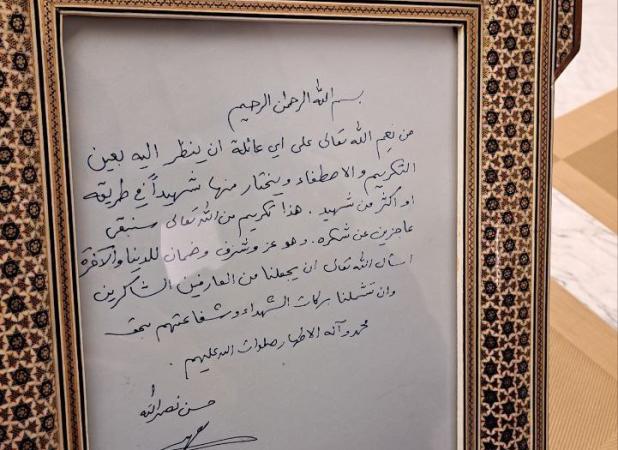 بسم الله الرحمن الرحيم
من نعم الله تعالى على اي عائلة ان ينظر اليه بعين
التكريم والاصطفاء ويختار منها شهيداً في طريقه
او اكثر من شهيد. هذا تكريم من الله تعالى سنبقى
عاجزين عن شكره. وهو عز وشرف وضمان للدنيا والآخرة
اسأل الله تعالى ان يجعلنا من العارفين الشاكرين
وان تشملنا بركات الشهداء وشفاعتهم بحق
محمد وآله الاطهار صلوات الله عليهم.
حسن نصرالله